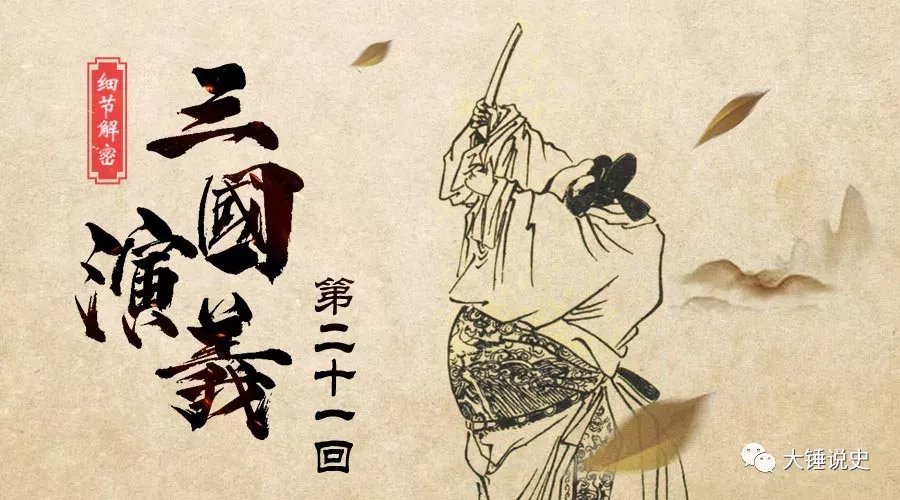 细节解密
三國
演義
第二十一回
大锤说史